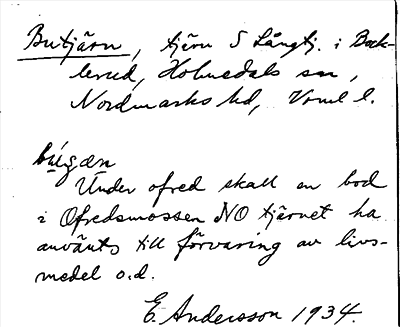 Butjärn, tjärn S Långtj. i Back-
lerud, Holmedals sn,
Nordmarks hd, Vrml l.
bu̍gæn
Under ofred skall en bod
i Ofredsmossen NO tjärnet ha
använts till förvaring av livs-
medel o.d.
E. Andersson 1934.